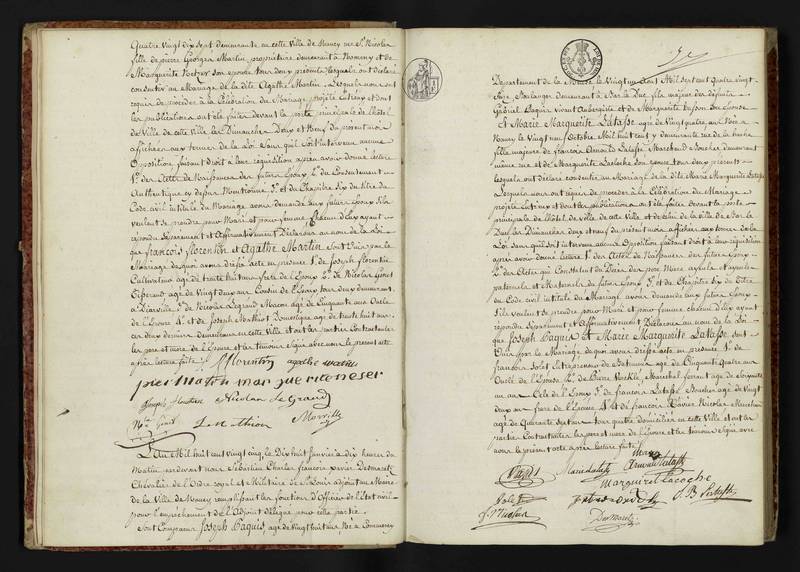 Quatre vingt dix sept demeurante en cette Ville de Nancy rue St Nicolas
fille de pierre Georges Martin, propriétaire demeurant à Nomeny et de
Marguerite son épouse tous deux présents lesquels ont déclaré
consentir au Mariage de la dite Agathe Martin. Lesquels nous ont
requis de procéder à la Célébration du Mariage projeté entr'eux et dont
les publications ont été faites devant la porte principale de l'hôtel
de Ville de cette Ville les Dimanches Deux et Neuf du présent mois
affichées aux termes de la loi sans qu'il soit intervenu aucune
Opposition faisant droit à leur réquisition après avoir donné lecture
1° des Actes de Naissances des futurs Epoux 2° du Consentement
Authentique ci dessus Mentionné 3° et du Chapitre six du titre du
Code civil intitulé du Mariage avons demandé aux futurs Epoux s'ils
veulent se prendre pour Mari et pour femme Chacun d'eux ayant
répondu séparément et Affirmativement Déclarons au nom de la Loi
que françois florentin et Agathe Martin sont Unis par le
Mariage de quoi avons dressé acte en présence 1° de Joseph florentin
Cultivateur âgé de trente huit ans frère de l'Epoux 2° de Nicolas
âgé de vingt deux ans Cousin de l'Epoux tous deux demeurant
à 3° de Nicolas Legrand Macon âgé de Cinquante ans Oncle
de l'Epouse 4° et de Joseph Mathiot Domestique âgé de trente huit ans
ces deux derniers demeurans en cette Ville et ont les parties Contractantes
les père et mère de l'Epouse et les témoins signé avec nous le présent acte
après lecture faite
florentin agathe martin
pier Martin
Joseph Nicolas Le Grand
L'An Mil huit cent vingt cinq, le Dix huit Janvier à dix heures du
Matin pardevant nous Sébastien Charles françois xavier Desmarets
Chevalier de l'Ordre royal et Militaire de St Louis adjoint au Maire
de la Ville de Nancy remplissant les fonctions d'Officier de l'Etat civil
pour l'empêchement de l'Adjoint délégué pour cette partie.
Sont Comparus Joseph Paquis, âgé de vingt huit ans, Né à Commercy
Département de la Meuse le Vingt un Aout Mil sept cent quatre vingt
seize, Boulanger demeurant à Bar le Duc fils majeur des défunts
Gabriel Paquis Vivant Aubergiste et de Marguerite son Epouse
Et Marie Marguerite Latasse agée de Vingt quatre ans Née à
Nancy le Vingt un Octobre Mil huit cent y demeurante rue de la
fille majeure de françois Latasse Marchand Boucher demeurant
même rue et de Marguerite son épouse tous deux présents
lesquels ont déclaré consentir au Mariage de la dite Marie Marguerite Latasse
Lesquels nous ont requis de procéder à la Célébration du Mariage
projeté entr'eux et dont les publications ont été faites devant la porte
principale de l'hôtel de Ville de cette Ville et de celui de la Ville de Bar le
Duc les Dimanches deux et neuf du présent mois affichées aux termes de la
Loi sans qu'il soit intervenu aucune Opposition faisant droit à leur réquisition
après avoir donné lecture 1° des Actes de Naissances des futurs Epoux
2° des Actes qui Constatent le Décès des père Mère ayeuls et ayeules
paternels et Maternels du futur Epoux 3° et du Chapitre six du titre
du Code civil intitulé du Mariage avons demandé aux futurs Epoux
s'ils veulent se prendre pour Mari et pour femme chacun d'eux ayant
répondu séparément et Affirmativement Déclarons au nom de la Loi
que Joseph Paquis Et Marie Marguerite Latasse sont
Unis par le Mariage de quoi avons dressé acte en présence 1° de
françois Entrepreneur de Batimens agé de Cinquante Quatre ans
Oncle de l'Epouse 2° de Pierre Maréchal ferrant agé de Soixante
un ans 3° de françois Latasse Boucher agé de Vingt
deux ans frère de l'Epouse 4° et de françois Xavier Nicolas
agé de Quarante sept ans tous quatre domiciliés en cette Ville et ont les
parties Contractantes les père et mère de l'Epouse et les témoins signé avec
nous le présent acte après lecture faite
Marie Latasse
Desmarets